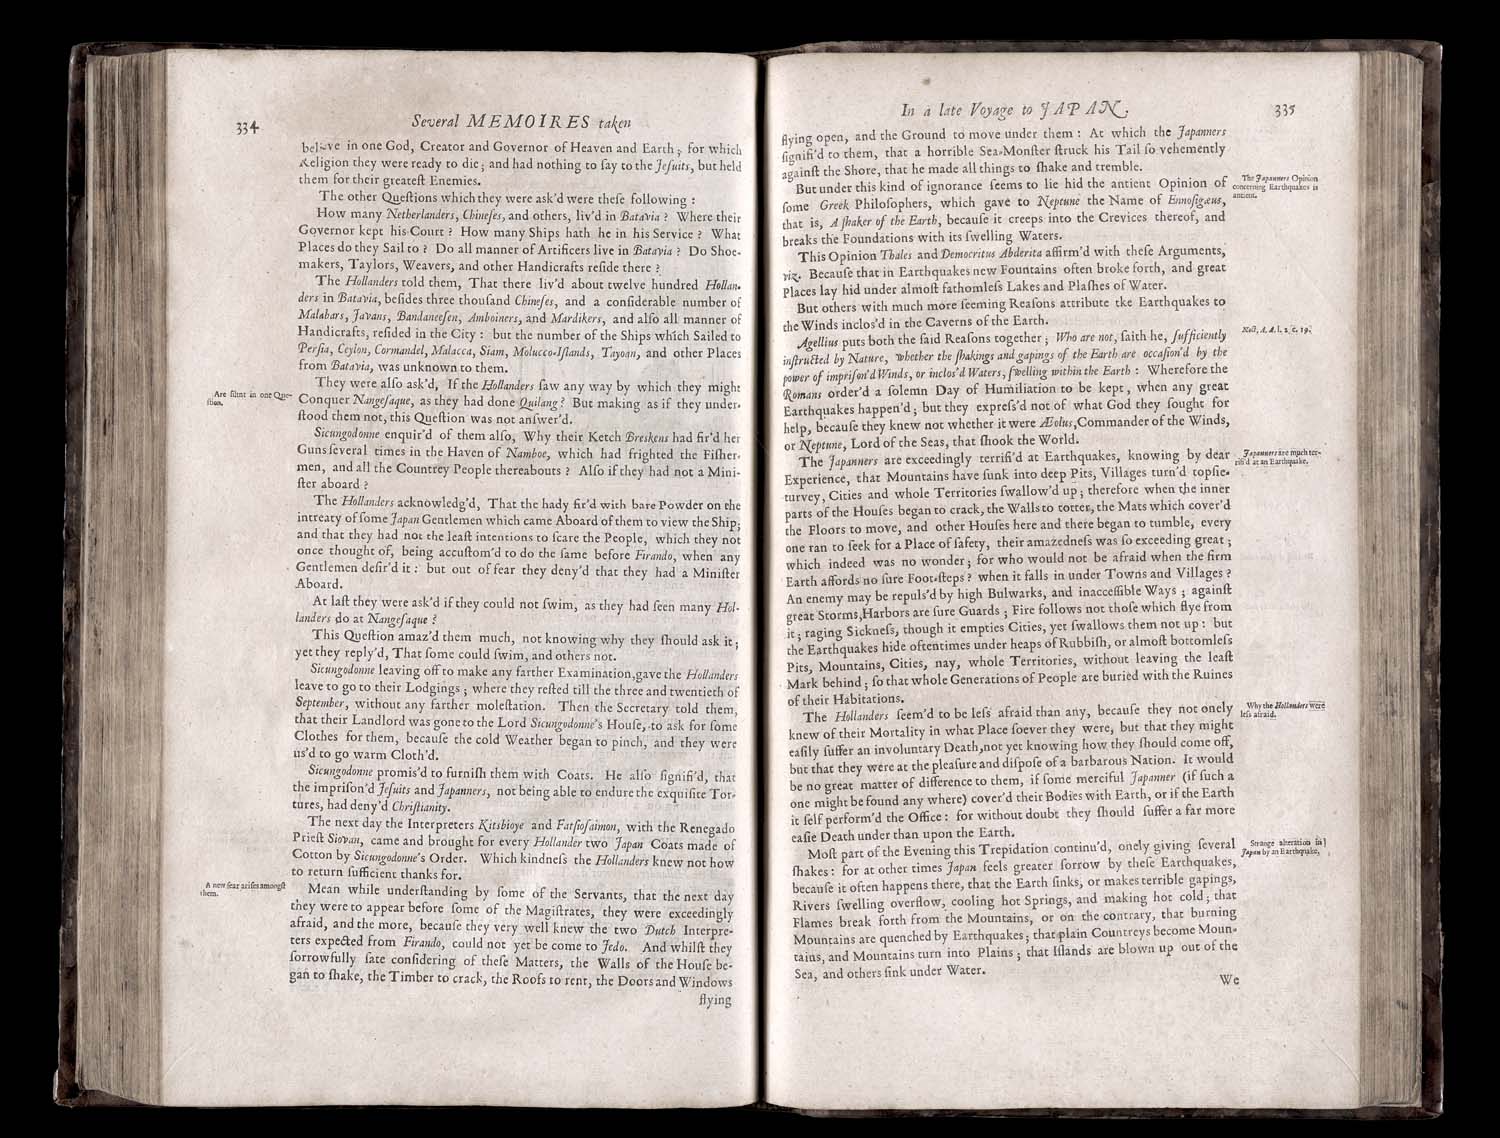 334
Several MEMOIRES taken
believe in one God, Creator and Governor of Heaven and Earth; for which
Religion they were ready to die; and had nothing to ſay to the Jeſuits, but held
them for their greateſt Enemies.
The other Queſtions which they were ask'd were theſe following :
How many Netherlanders, Chineſes, and others, liv'd in Batavia ? Where their
Governor kept his Court ? How many Ships hath he in his Service ? What
Places do they Sail to ? Do all manner of Artificers live in Batavia ? Do Shoe-
makers, Taylors, Weavers, and other Handicrafts reſide there ?
The Hollanders told them, That there liv'd about twelve hundred Hollan-
ders in Batavia, beſides three thouſand Chineſes, and a conſiderable number of
Malabars, Javans, Bandaneeſen, Amboiners, and Mardikers, and alſo all manner of
Handicrafts, reſided in the City : but the number of the Ships which Sailed to
Perſia, Ceylon, Cormandel, Malacca, Siam, Molucco-Iſlands, Tayoan, and other Places
from Batavia, was unknown to them.
They were alſo ask'd, If the Hollanders ſaw any way by which they might
Are ſilent in one Que-
ſtion.
Conquer Nangeſaque, as they had done Quilang ? But making as if they under-
ſtood them not, this Queſtion was not anſwer'd.
Sicungodonne enquir'd of them alſo, Why their Ketch Breskens had fir'd her
Guns ſeveral times in the Haven of Namboe, which had frighted the Fiſher-
men, and all the Countrey People thereabouts ? Alſo if they had not a Mini-
ſter aboard ?
The Hollanders acknowledg'd, That the hady fir'd with bare Powder on the
intreaty of ſome Japan Gentlemen which came Aboard of them to view the Ship;
and that they had not the leaſt intentions to ſcare the People, which they not
once thought of, being accuſtom'd to do the ſame before Firando, when any
Gentlemen deſir'd it : but out of fear they deny'd that they had a Miniſter
Aboard.
At laſt they were ask'd if they could not ſwim, as they had ſeen many Hol-
landers do at Nangeſaque ?
This Queſtion amaz'd them much, not knowing why they ſhould ask it ;
yet they reply'd, That ſome could ſwim, and others not.
Sicungodonne leaving off to make any farther Examination, gave the Hollanders
leave to go to their Lodgings ; where they reſted till the three and twentieth of
September, without any farther moleſtation. Then the Secretary told them,
that their Landlord was gone to the Lord Sicungodonne's Houſe, to ask for ſome
Clothes for them, becauſe the cold Weather began to pinch, and they were
us'd to go warm Cloth'd.
Sicungodonne promis'd to furniſh them with Coats. He alſo ſignifi'd, that
the impriſon'd Jeſuits and Japanners, not being able to endure the exquiſite Tor-
tures, had deny'd Chriſtianity.
The next day the Interpreters Kitsbioye and Fatſioſaimon, with the Renegado
Prieſt Siovan, came and brought for every Hollander two Japan Coats made of
Cotton by Sicungodonne's Order. Which kindneſs the Hollanders knew not how
to return ſufficient thanks for.
A new fear ariſes amongſt
them.
Mean while underſtanding by ſome of the Servants, that the next day
they were to appear before ſome of the Magiſtrates, they were exceedingly
afraid, and the more, becauſe they very well knew the two Dutch Interpre-
ters expected from Firando, could not yet be come to Jedo. And whilſt they
ſorrowfully ſate conſidering of theſe Matters, the Walls of the Houſe be-
gan to ſhake, the Timber to crack, the Roofs to rent, the Doors and Windows
flying
In a late Voyage to JAPAN.
335
flying open, and the Ground to move under them : At which the Japanners
ſignifi'd to them, that a horrible Sea-Monſter ſtruck his Tail ſo vehemently
againſt the Shore, that he made all things to ſhake and tremble.
The Japanners Opinion
concerning Earthquakes is
antient.
But under this kind of ignorance ſeems to lie hid the antient Opinion of
ſome Greek Philoſophers, which gave to Neptune the Name of Ennoſigæus,
that is, A ſhaker of the Earth, becauſe it creeps into the Crevices thereof, and
breaks the Foundations with its ſwelling Waters.
This Opinion Thales and Democritus Abderita affirm'd with theſe Arguments,
viz. Becauſe that in Earthquakes new Fountains often broke forth, and great
Places lay hid under almoſt fathomleſs Lakes and Plaſhes of Water.
But others with much more ſeeming Reaſons attribute tke Earthquakes to
the Winds inclos'd in the Caverns of the Earth.
Noct. A. A. l. 2. c. 19.
Agellius puts both the ſaid Reaſons together ; Who are not, ſaith he, ſufficiently
inſtructed by Nature, whether the ſhakings and gapings of the Earth are occaſion'd by the
power of impriſon'd Winds, or inclos'd Waters, ſwelling within the Earth : Wherefore the
Romans order'd a ſolemn Day of Humiliation to be kept, when any great
Earthquakes happen'd ; but they expreſs'd not of what God they ſought for
help, becauſe they knew not whether it were Æolus, Commander of the Winds,
or Neptune, Lord of the Seas, that ſhook the World.
Japanners are much ter-
rifi'd at an Earthquake.
The Japanners are exceedingly terrifi'd at Earthquakes, knowing by dear
Experience, that Mountains have ſunk into deep Pits, Villages turn'd topſie-
turvey, Cities and whole Territories ſwallow'd up ; therefore when the inner
parts of the Houſes began to crack, the Walls to totter, the Mats which cover'd
the Floors to move, and other Houſes here and there began to tumble, every
one ran to ſeek for a Place of ſafety, their amazedneſs was ſo exceeding great ;
which indeed was no wonder ; for who would not be afraid when the firm
Earth affords no ſure Foot-ſteps ? when it falls in under Towns and Villages ?
An enemy may be repuls'd by high Bulwarks, and inacceſſible Ways ; againſt
great Storms, Harbors are ſure Guards ; Fire follows not thoſe which flye from
it ; raging Sickneſs, though it empties Cities, yet ſwallows them not up : but
the Earthquakes hide oftentimes under heaps of Rubbiſh, or almoſt bottomleſs
Pits, Mountains, Cities, nay, whole Territories, without leaving the leaſt
Mark behind ; ſo that whole Generations of People are buried with the Ruines
of their Habitations.
Why the Hollanders were
leſs afraid.
The Hollanders ſeem'd to be leſs afraid than any, becauſe they not onely
knew of their Mortality in what Place ſoever they were, but that they might
eaſily ſuffer an involuntary Death, not yet knowing how they ſhould come off,
but that they were at the pleaſure and diſpoſe of a barbarous Nation. It would
be no great matter of difference to them, if ſome merciful Japanner (if ſuch a
one might be found any where) cover'd their Bodies with Earth, or if the Earth
it ſelf perform'd the Office : for without doubt they ſhould ſuffer a far more
eaſie Death under than upon the Earth.
Strange alteration in
Japan by an Earthquake.
Moſt part of the Evening this Trepidation continu'd, onely giving ſeveral
ſhakes : for at other times Japan feels greater ſorrow by theſe Earthquakes,
becauſe it often happens there, that the Earth ſinks, or makes terrible gapings,
Rivers ſwelling overflow, cooling hot Springs, and making hot cold ; that
Flames break forth from the Mountains, or on the contrary, that burning
Mountains are quenched by Earthquakes ; that plain Countreys become Moun-
tains, and Mountains turn into Plains ; that Iſlands are blown up out of the
Sea, and others ſink under Water.
We